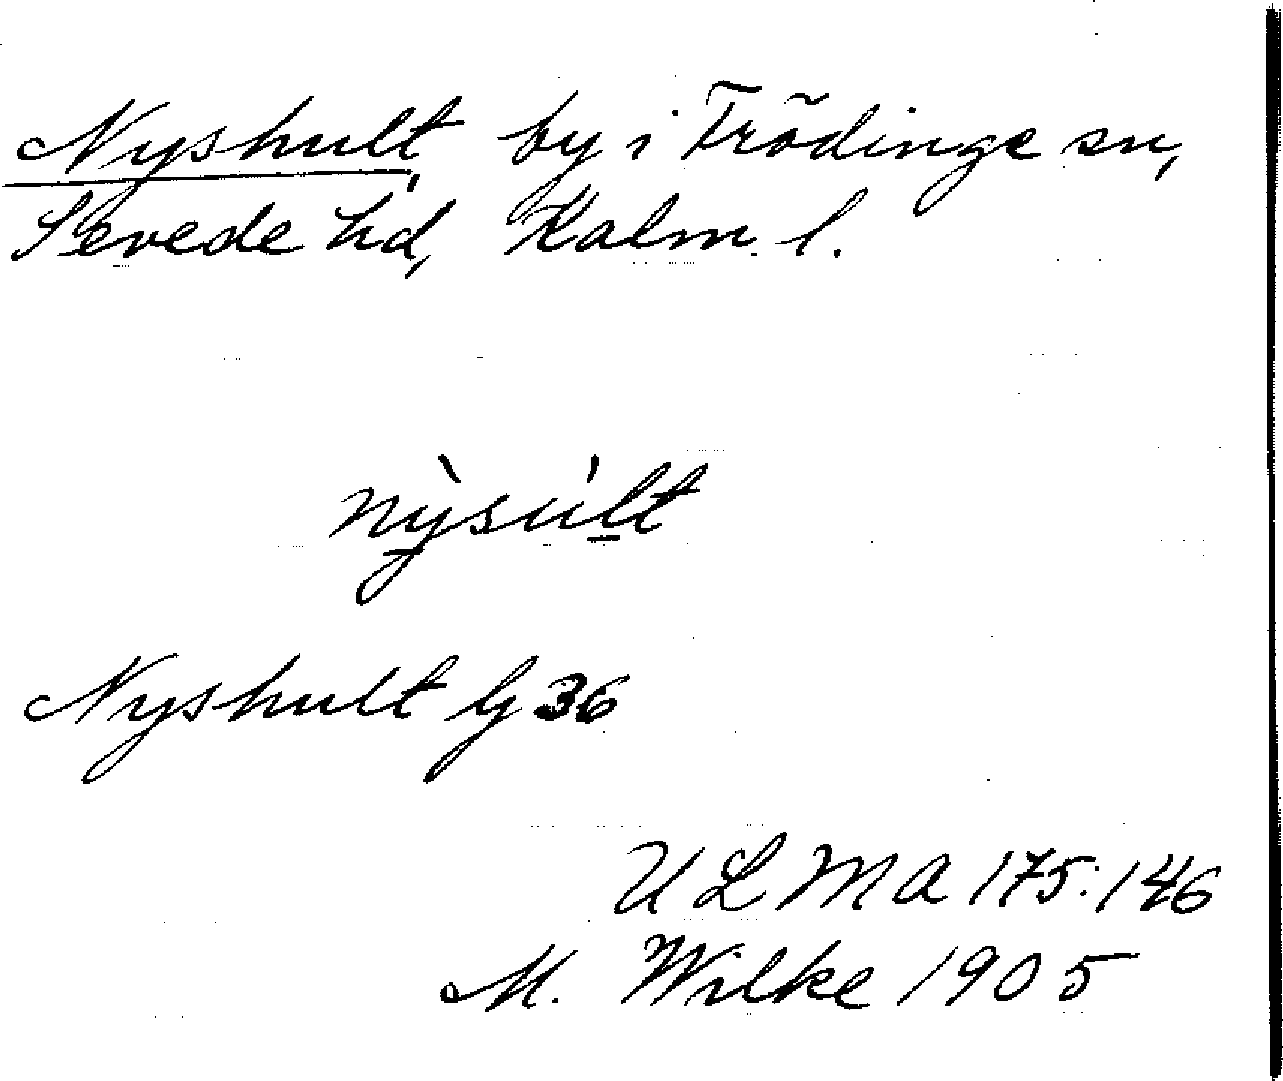 Nyshult, by i Frödinge sn,
Sevede hd, Kalm. l.
nỳsúlt
Nyshult Gj 36
ULMA 175:146
M. Wilke 1905